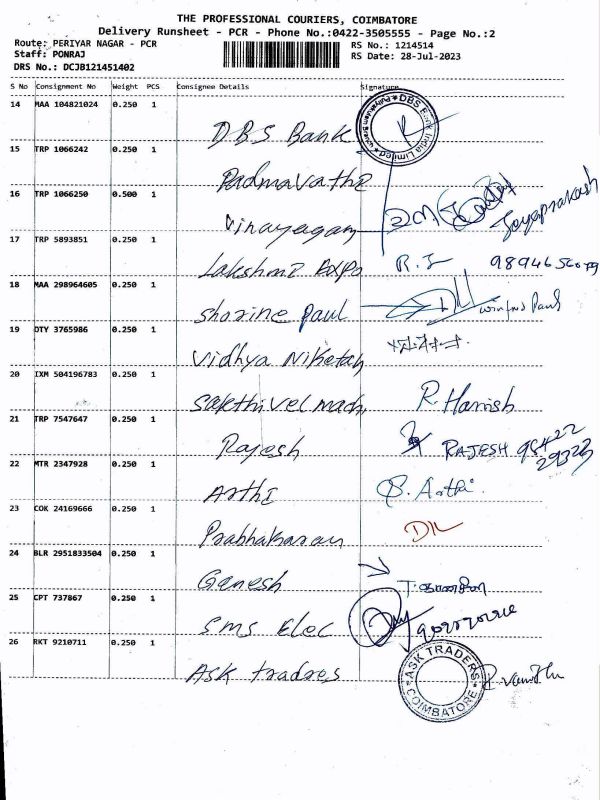 THE PROFESSIONAL COURIERS, COIMBATORE
Delivery Runsheet - PCR - Phone No.:0422-3505555 - Page No.:2
Route: PERIYAR NAGAR - PCR RS No.: 1214514
Staff: PONRAJ RS Date: 28-Jul-2023
DRS No.: DCJB121451402
S No Consignment No Weight PCS Consignee Details Signature
14 MAA 104821024 0.250 1
DBS Bank DBS Bank India Limited
15 TRP 1066242 0.250 1
Padmavathi
16 TRP 1066250 0.500 1
Vinayagam Jayaprakash
17 TRP 5893851 0.250 1
Lakshmi Expo R.
18 MAA 298964605 0.250 1
Sharine Paul Paul
19 OTY 3765986 0.250 1
Vidhya Niketan
20 IXM 504196783 0.250 1
Sakthivel mach R. Harrish
21 TRP 7547647 0.250 1
Rajesh RAJESH 98422
29323
22 MTR 2347928 0.250 1
Arthi S. Arthi
23 COK 24169666 0.250 1
Prabhakaran
24 BLR 2951833504 0.250 1
Ganesh
25 CPT 737867 0.250 1
SMS Elec
26 RKT 9210711 0.250 1
ASK tradres ASK TRADERS COIMBATORE